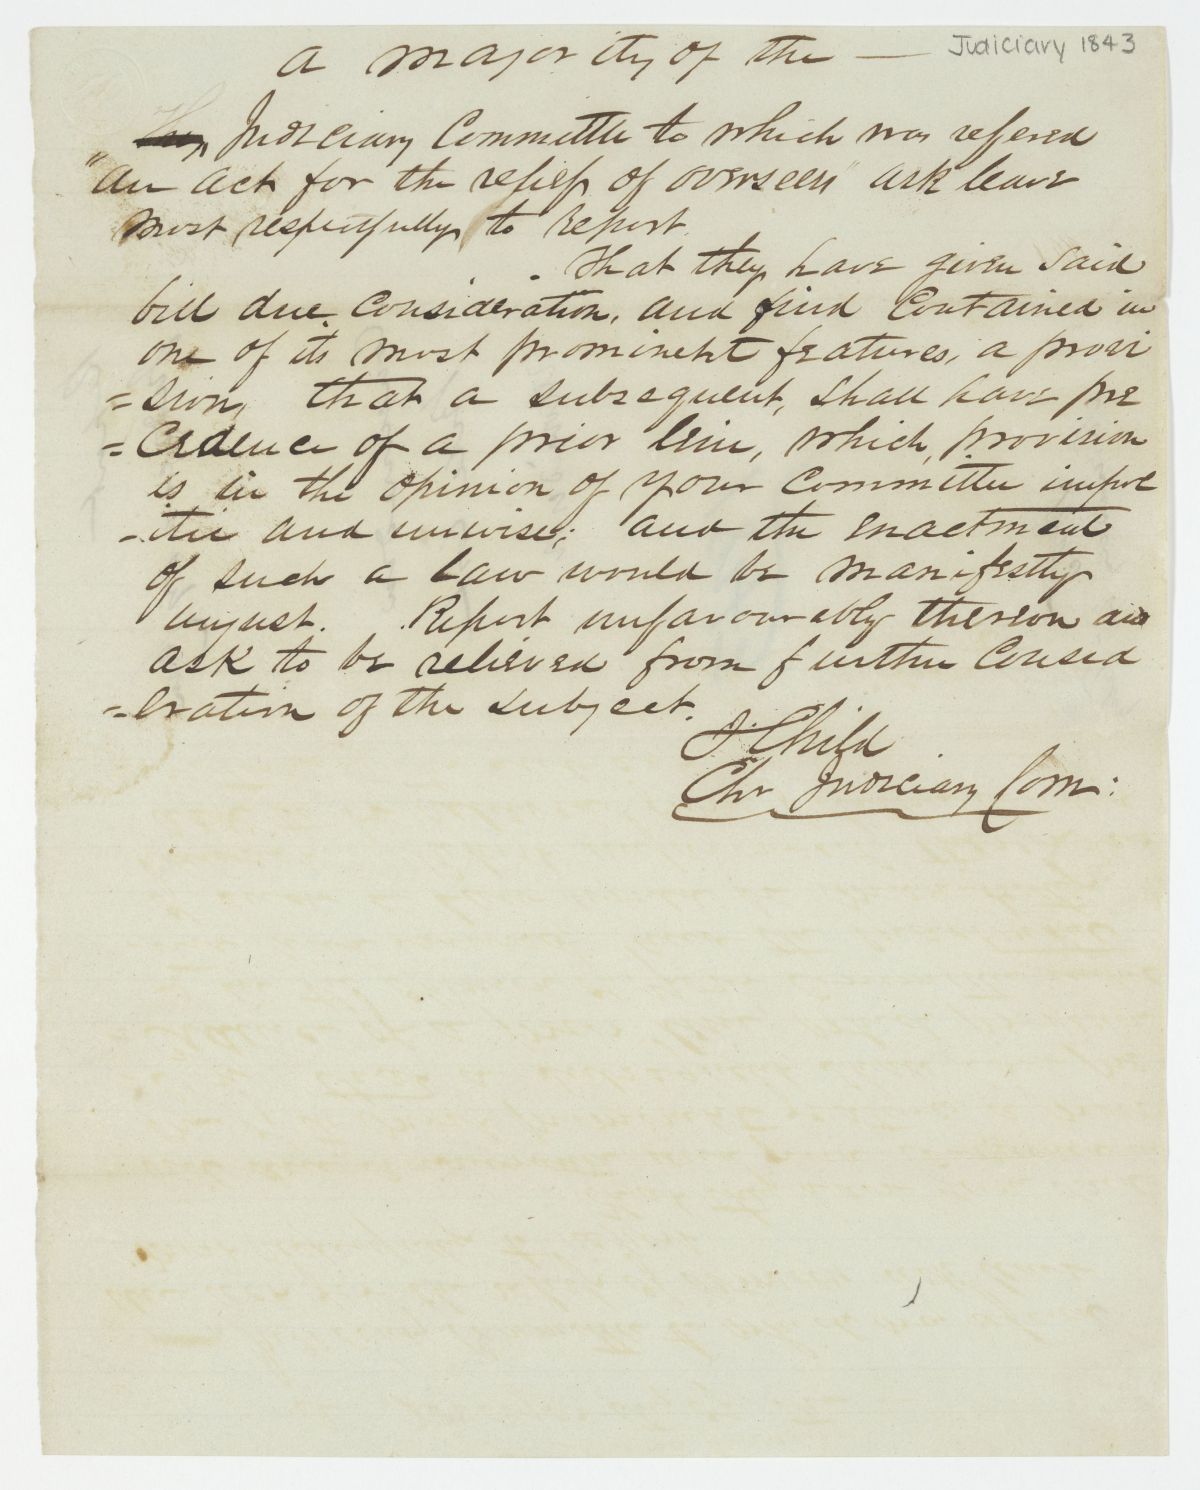 Judiciary 1843
a majority of the —
Judiciary Committee to which was refered
"An act for the relief of overseers" ask leave
most respectfully to report.
That they have given said
bill due consideration, and find contained in
one of its most prominent features, a provi
=sion, that a subsequent, shall have pre
=cedence of a prior lein, which, provision
is in the opinion of your committee impol
-itic and unwise; and the enactment
of such a law would be manifestly
unjust. Report unfavourably thereon and
ask to be relieved from further consid
=eration of the subject.
J. Child
Chr Judiciary Com: